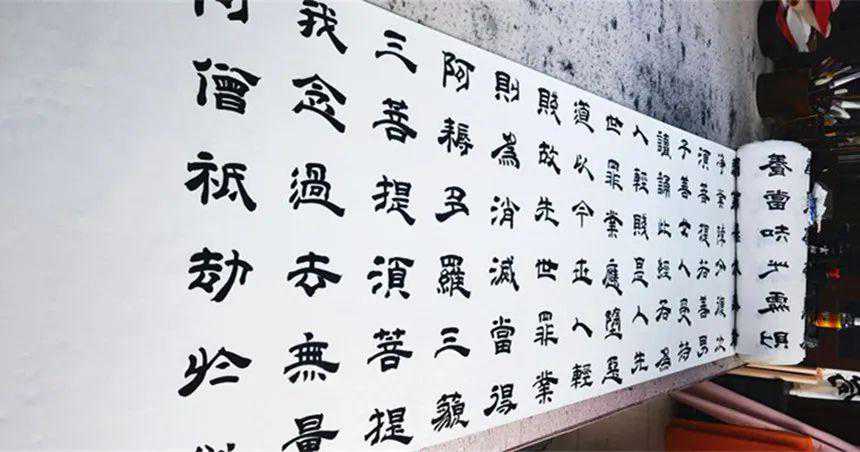 養當知此處則
淨業障分復次
須菩提若善男
子善女人受持
讀誦此經若為
人輕賤是人先
世罪業應墮惡
道以今世人輕
賤故先世罪業
則為消滅當得
阿耨多羅三藐
三菩提須菩提
我念過去無量
阿僧祇劫於